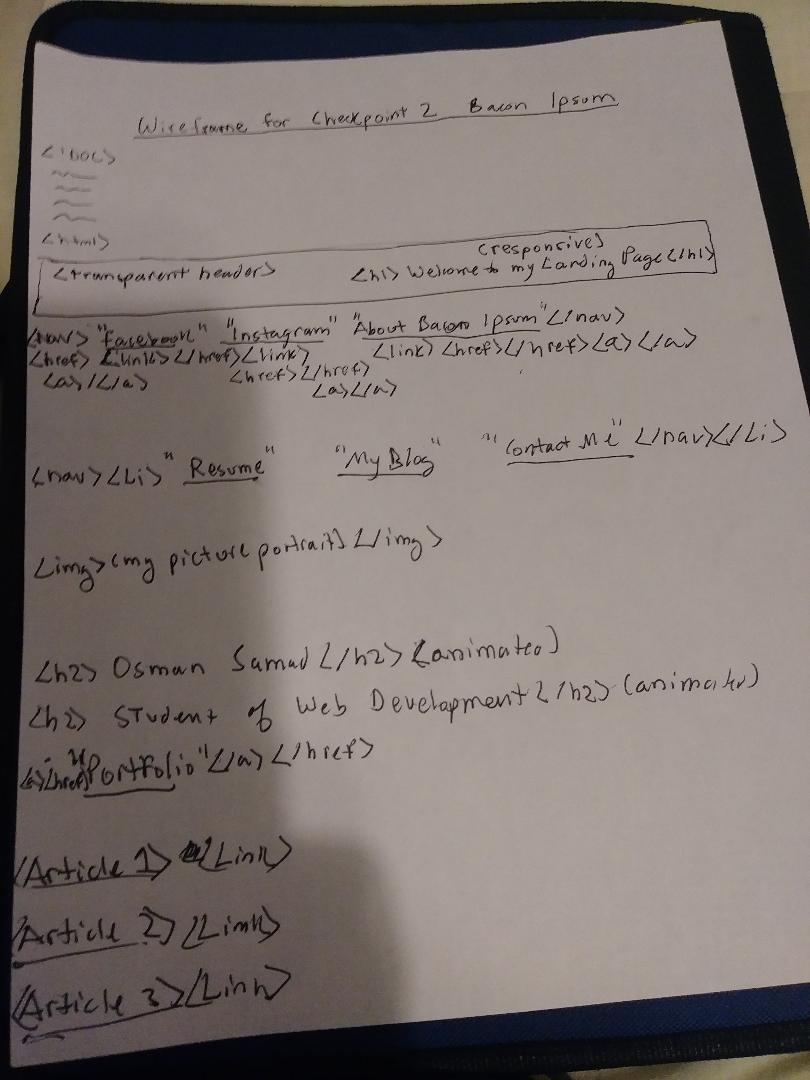 Wireframe for Checkpoint 2 Bacon Ipsum
<!DOC>
<html>
(responsive)
<transparent header> <h1> Welcome to my Landing Page</h1>
<nav> "Facebook" "Instagram" "About Bacon Ipsum"</nav>
<href> <link></href><link> <link> <href></href><a></a>
<a></a> <href></href>
<a></a>
<nav><Li> "Resume" "My Blog" "Contact Me" </nav></Li>
<img>(my picture portrait)</img>
<h2> Osman Samad</h2> (animated)
<h2> Student of Web Development</h2> (animated)
<a><href>"Portfolio"</a></href>
<Article 1> <Link>
<Article 2> <Link>
<Article 3> <Link>